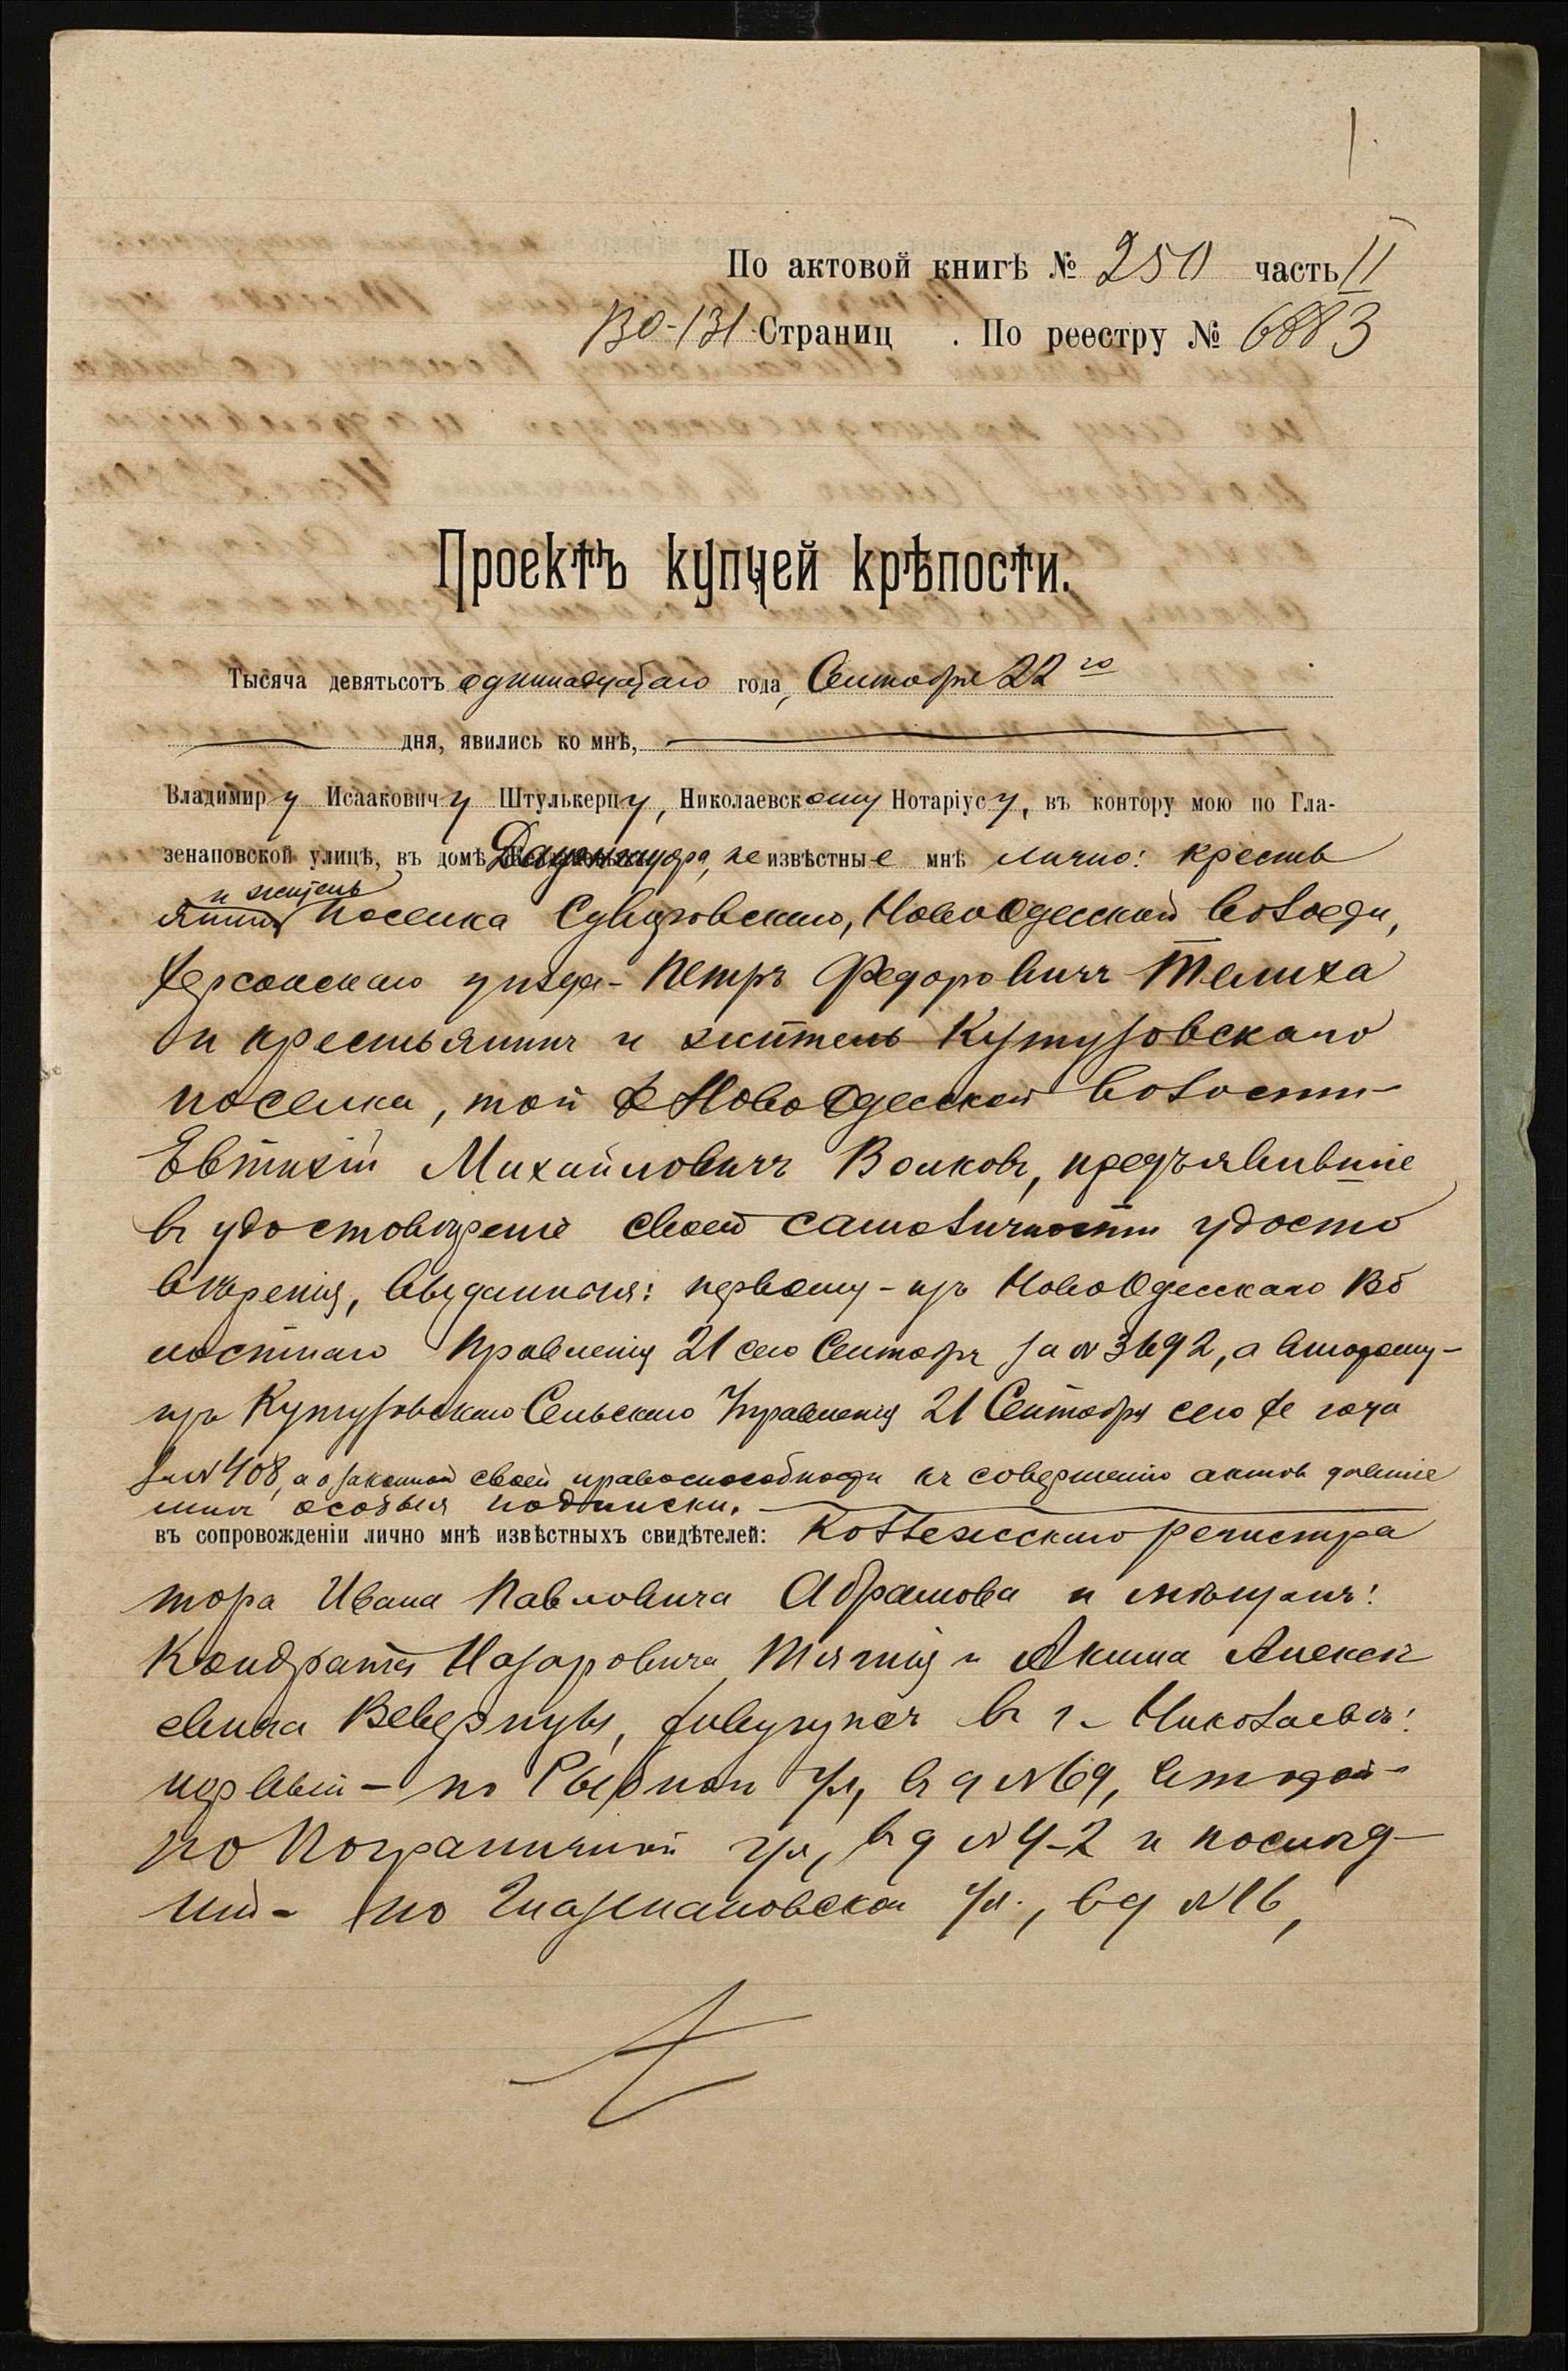 1.
По актовой книгѣ № 250 часть II
130-131 Страниц . По реестру № 6883
Проектъ купчей крѣпости.
Тысяча девятьсотъ одиннадцатаго года, Сентября 22го
дня, явились ко мнѣ,
Владимиру Исааковичу Штулькерцу, Николаевскому Нотаріусу, въ контору мою по Гла-
зенаповской улицѣ, въ домѣ не извѣстные мнѣ лично: кресть
и житель
янинъ поселка Суворовскаго, НовоОдесской волости,
Херсонскаго уѣзда - Петръ Федоровичъ Телиха
и крестьянинъ и житель Кутузовскаго
поселка, той же НовоОдесской волости -
Евтихій Михайловичъ Волковъ, предъявившіе
въ удостовѣреніе своей самоличности удосто
вѣренія, выданныя: первому - изъ НовоОдесскаго Во
лостнаго Правленія 21 сего Сентября за № 3692, а второму -
изъ Кутузовскаго Сельскаго Управленія 21 Сентября сего же года
за № 408, а о законной своей правоспособности къ совершенію актовъ давшіе
мнѣ особыя подписки.
въ сопровожденіи лично мнѣ извѣстныхъ свидѣтелей: Коллежскаго регистра
тора Ивана Павловича Абрамова и мѣщанъ:
Кондрата Назаровича и Акима Алексѣ
евича живущихъ въ г. Николаевѣ:
первый - по Рыбной ул., въ д № 69, второй -
по Пограничной ул., въ д № 42 и послѣд-
ній - по Глазенаповской ул., въ д № 16,